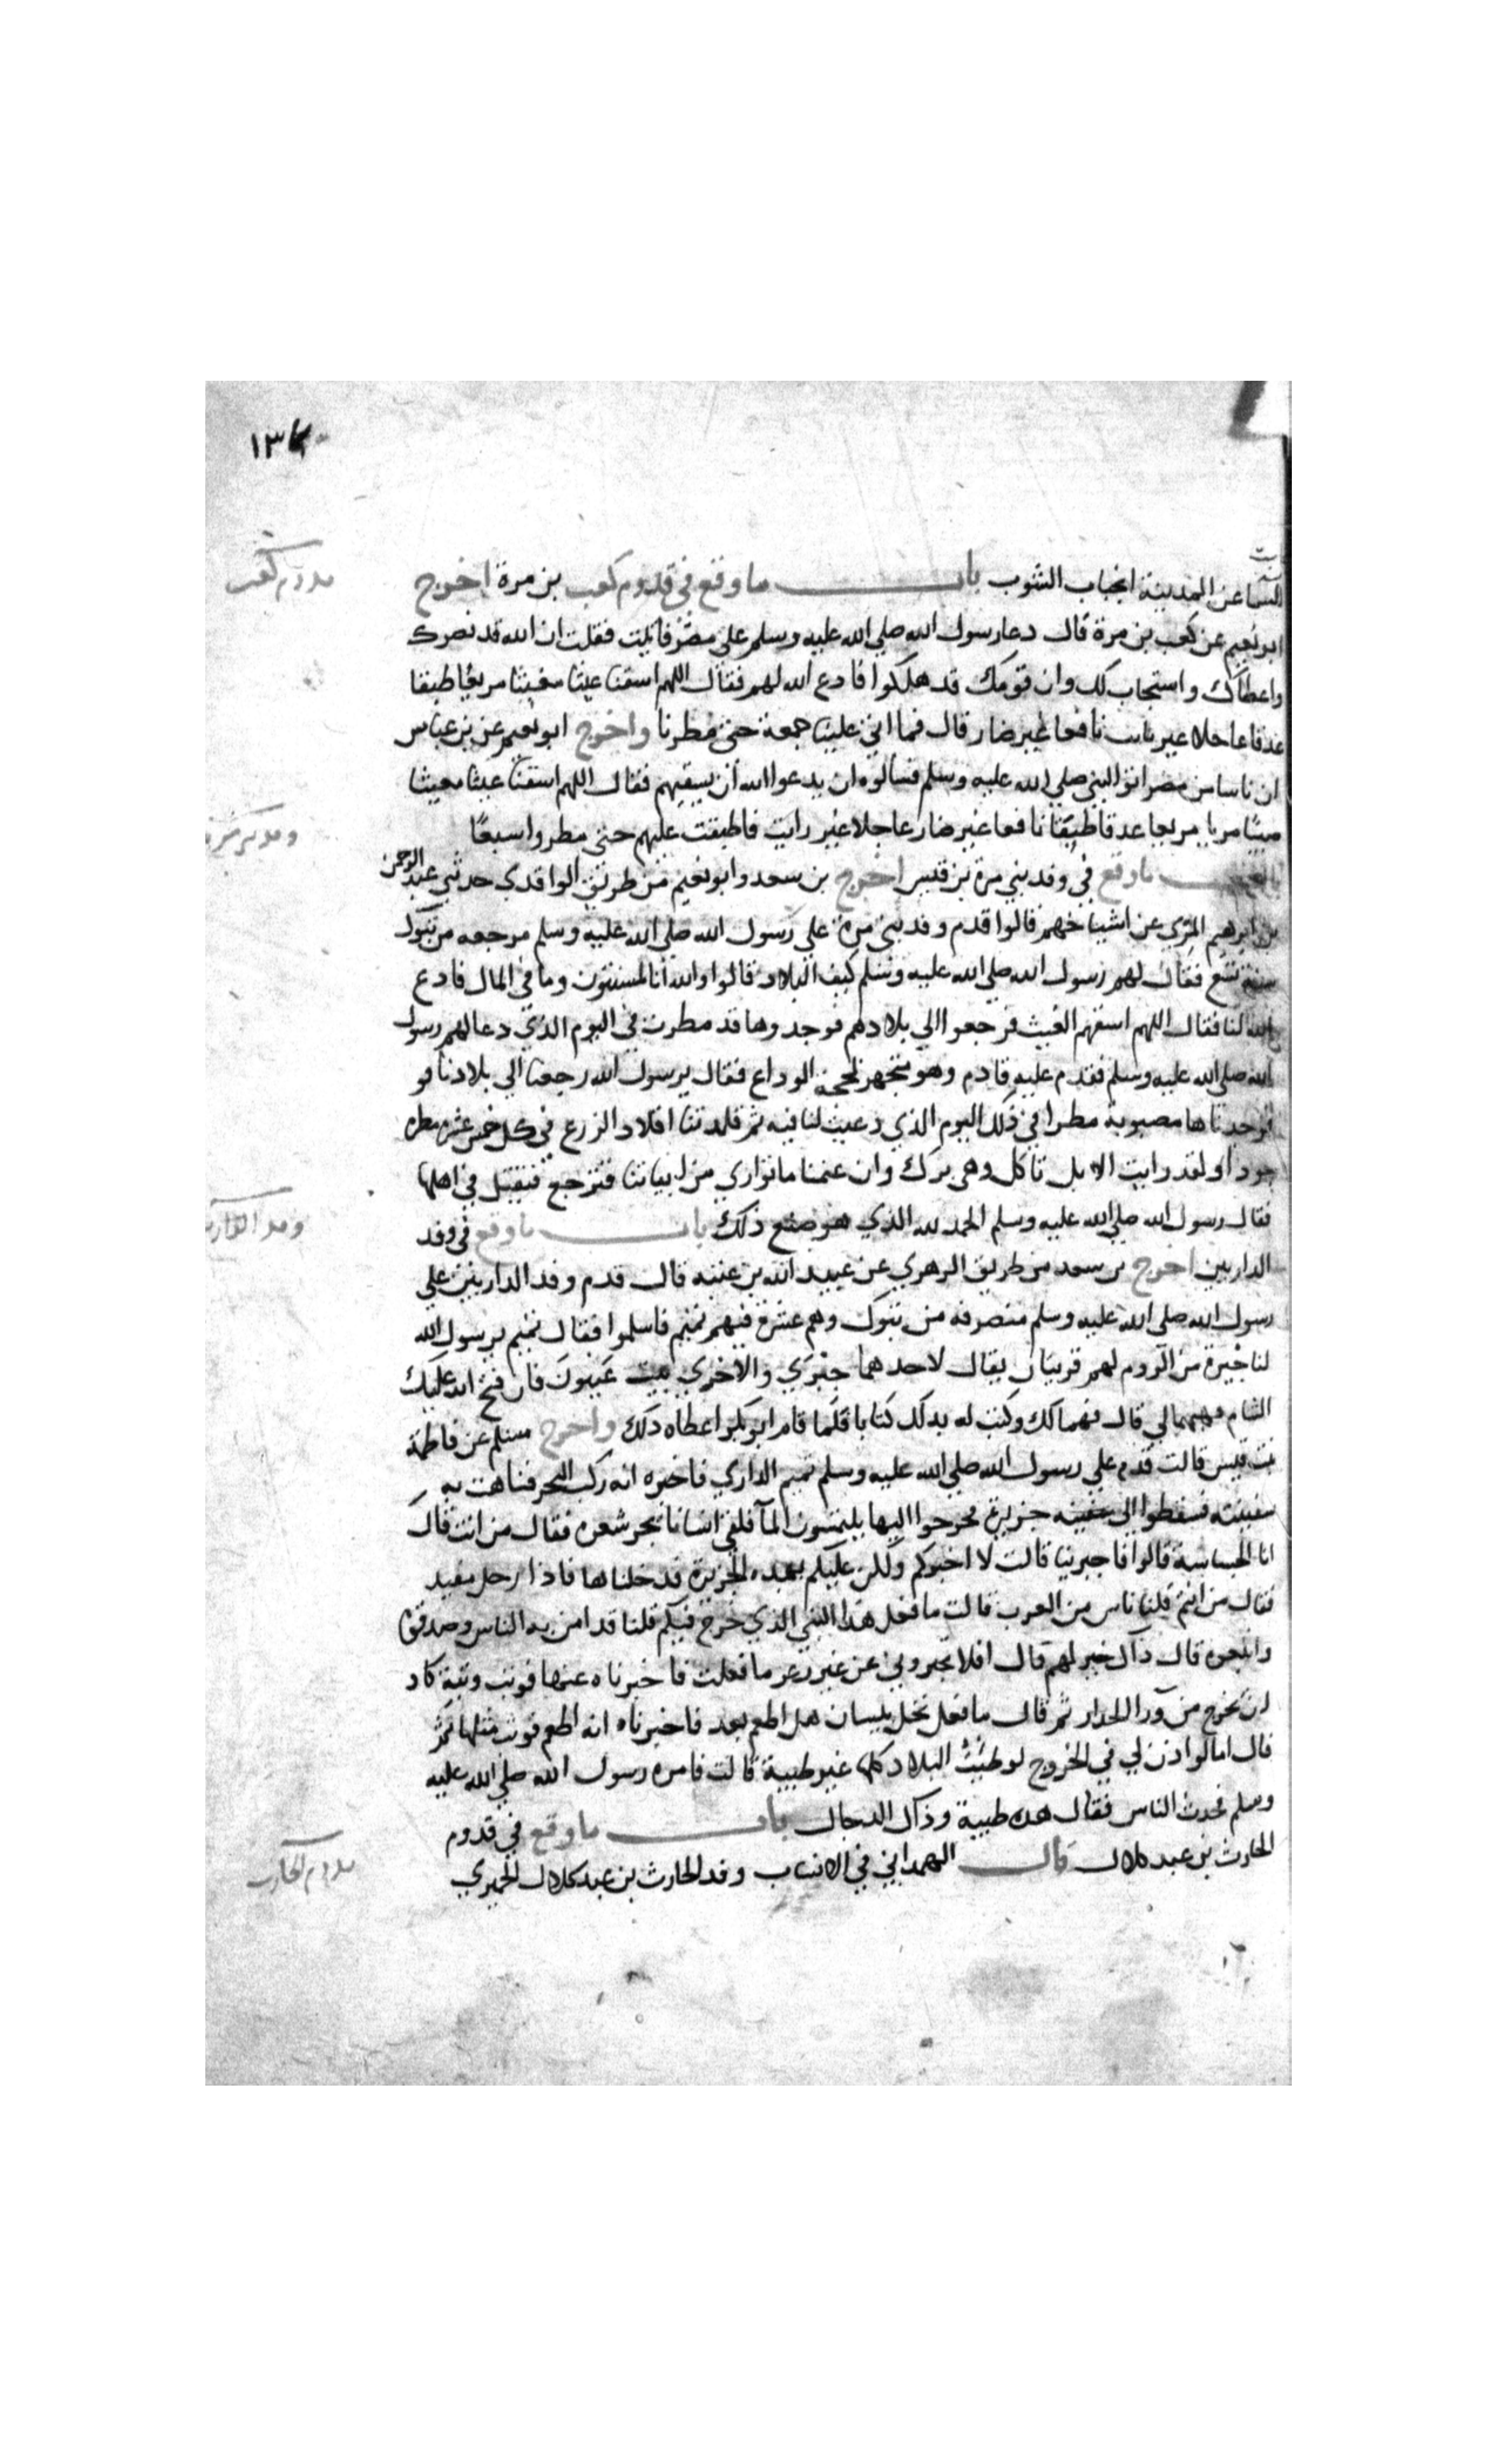 ١٣٤
السما عن المدينة انجياب الثوب باب ما وقع في قدوم كعب بن مرة اخرج
قدوم كعب
ابو نعيم عن كعب بن مرة قال دعا رسول الله صلي الله عليه وسلم علي مضر فاتيت فقلت ان الله قد نصرك
واعطاك واستجاب لك وان قومك قد هلكوا فادع الله لهم فقال اللهم اسقنا غيثا مغيثا مريعا طبقا
غدقا عاجلا غير رايث نافعا غير ضار قال فما اتي علينا جمعة حتي مطرنا واخرج ابو نعيم عن بن عباس
ان ناسا من مضر اتوا النبي صلي الله عليه وسلم فسالوه ان يدعوا الله ان يسقيهم فقال اللهم اسقنا غيثا مغيثا
مريا مريعا غدقا طبقا نافعا غير ضار عاجلا غير رايث فاطبقت عليهم حتي مطروا سبعا
ما وقع في وفد بني مرة بن قيس اخرج بن سعد وابو نعيم من طريق الواقدي حدثني عبد الرحمن
بن ابرهيم المزي عن اشياخهم قالوا قدم وفد بني مرة علي رسول الله صلي الله عليه وسلم مرجعه من تبوك
سنة تسع فقال لهم رسول الله صلي الله عليه وسلم كيف البلاد قالوا والله انا لمسنتون وما في المال فادع
الله لنا فقال اللهم اسقهم الغيث فرجعوا الي بلادهم فوجدوها قد مطرت في اليوم الذي دعا لهم رسول
الله صلي الله عليه وسلم فقدم عليه قادم وهو متجهز لحجة الوداع فقال يرسول الله رجعنا الي بلادنا فو
فوجدناها مصبوبة مطرا في ذلك اليوم الذي دعيت لنا فيه ثم قلدتنا اقلاد الزرع في كل خمس عشرة مطرة
جودا ولقد رايت الابل تاكل وهي برك وان غنمنا ما تواري من ابياتنا فترجع فتقيل في اهلها
فقال رسول الله صلي الله عليه وسلم الحمد لله الذي هو صنع ذلك باب ما وقع في وفد
الداريين اخرج بن سعد من طريق الزهري عن عبيد الله بن عتبه قال قدم وفد الداريين علي
رسول الله صلي الله عليه وسلم منصرفه من تبوك وهم عشرة فيهم تميم فاسلموا فقال تميم يرسول الله
لنا جيرة من الروم لهم قريتان يقال لاحدهما حبري والاخري بيت عيون فان فتح الله عليك
الشام فهبهما لي قال فهما لك وكتب له بذلك كتابا فلما قام ابو بكر اعطاه ذلك واخرج مسلم عن فاطمة
بنت قيس قالت قدم علي رسول الله صلي الله عليه وسلم تميم الداري فاخبره انه ركب البحر فتاهت به
سفينته فسقطوا الي جزيرة فخرجوا اليها يلتمسون الما فلقي انسانا يجر شعره فقال من انت قال
انا الجساسة قالوا فاخبرينا قالت لا اخبركم ولكن عليكم بهذه الجزيرة فدخلناها فاذا رجل مقيد
فقال من انتم قلنا ناس من العرب قالت ما فعل هذا النبي الذي خرج فيكم قلنا قد امن به الناس وصدقوه
واتبعوه قال ذاك خير لهم قال افلا تخبروني عن عين زغر ما فعلت فاخبرناه عنها فوثب وثبة كاد
ان يخرج من ورا الجدار ثم قال ما فعل نخل بيسان هل اطعم بعد فاخبرناه انه اطعم فوثب مثلها ثم
قال اما لو اذن لي في الخروج لوطيت البلاد كلها غير طيبة قالت فامره رسول الله صلي الله عليه
وسلم فحدث الناس فقال هذه طيبة وذاك الدجال باب ما وقع في قدوم
الحارث بن عبد كلال قال الهمداني في الانساب وفد الحارث بن عبد كلال الحميري
قدوم الحارث